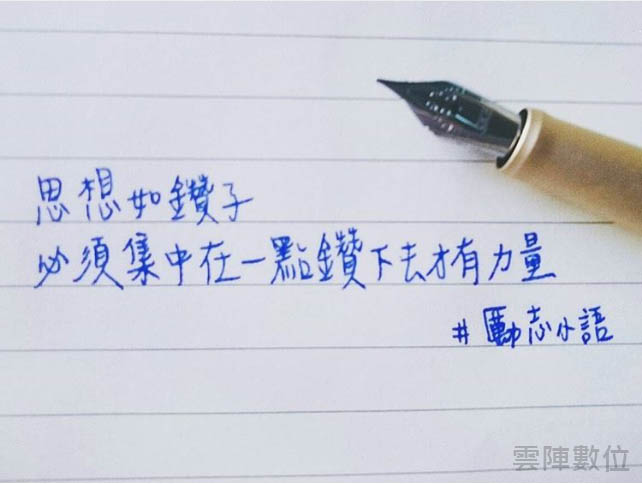 思想如鑽子
必須集中在一點鑽下去才有力量
#勵志小語
雲陣數位